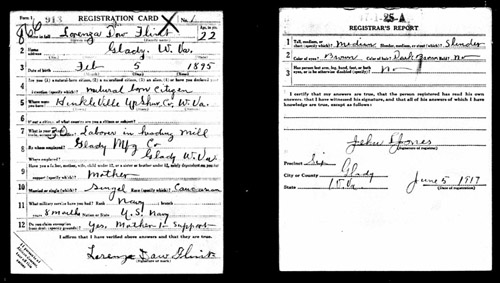 Form 1 913 REGISTRATION CARD No. 1
Name in full Lorenza Dow Flint Age, in yrs. 22
2 Home address Glady. W. Va.
3 Date of birth Feb 5 1895
4 Are you (1) a natural-born citizen, (2) a naturalized citizen, (3) an alien, (4) or have you declared your
intention (specify which)? natural born citizen
5 Where were you born? Hinkleville Upshur Co, W. Va.
6 If not a citizen, of what country are you a citizen or subject?
7 What is your present trade, occupation, or office? Laborer in heading mill
8 By whom employed? Glady Mfg Co
Where employed? Glady W. Va
9 Have you a father, mother, wife, child under 12, or a sister or brother under 12, solely dependent on you for
support (specify which)? Mother
10 Married or single (which)? Singel Race (specify which)? Caucasian
11 What military service have you had? Rank Navy; branch
years 8 months Nation or State U.S. Navy
12 Do you claim exemption from draft (specify grounds)? Yes. Mother to Support
I affirm that I have verified above answers and that they are true.
Lorenza Daw Flint
(Signature or mark)
25-A
REGISTRAR'S REPORT
1 Tall, medium, or short (specify which)? Medium Slender, medium, or stout (which)? Slender
2 Color of eyes? Brown Color of hair? Dark Brown Bald? No
3 Has person lost arm, leg, hand, foot, or both eyes, or is he otherwise disabled (specify)? No
I certify that my answers are true, that the person registered has read his own
answers, that I have witnessed his signature, and that all of his answers of which I have
knowledge are true, except as follows:
(Signature of registrar)
Precinct Six
City or County Glady
State W. Va.
June 5 1917
(Date of registration)